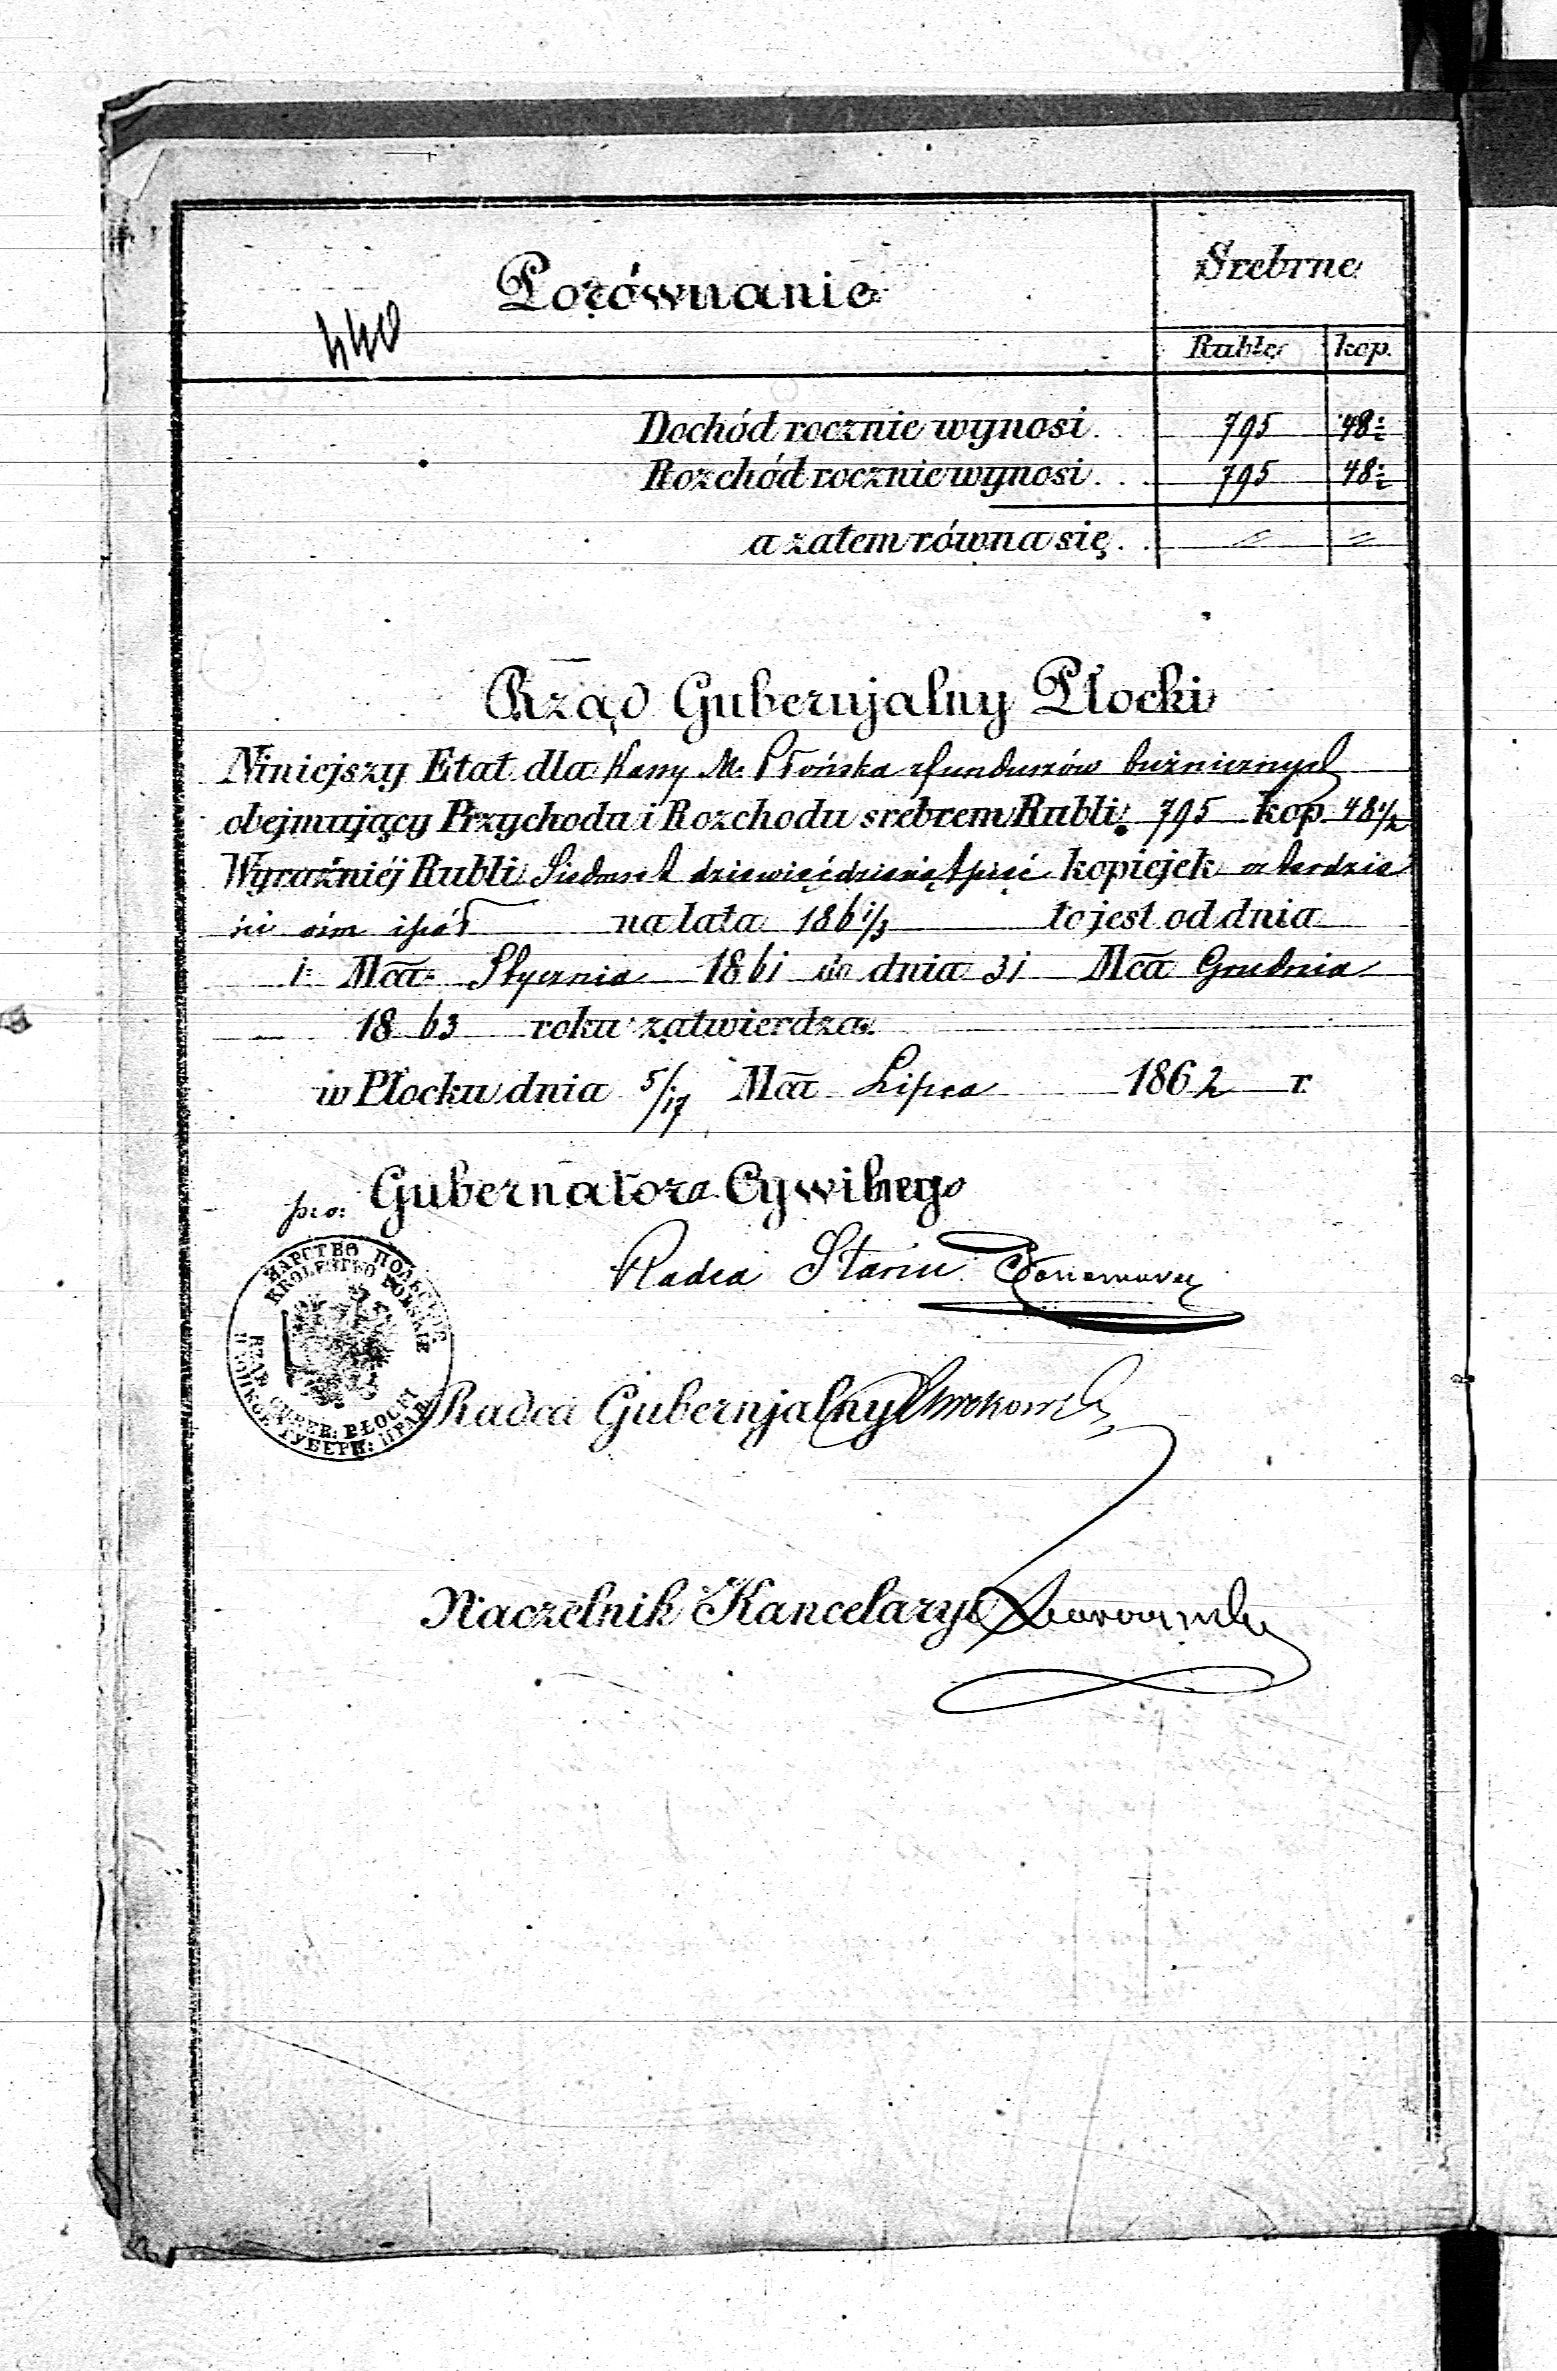 Porównanie
Srebrne
440
Ruble kop.
Dochód rocznie wynosi . . 795 48½
Rozchód rocznie wynosi . . . 795 48½
a zatem równa się . .
Rząd Gubernjalny Płocki
Niniejszy Etat dla Kassy M. Płońska z funduszów bużnicznych
obejmujący Przychodu i Rozchodu srebrem Rubli 795 kop. 48½
Wyraźniéj Rubli Siedmset dziewięćdziesiąt pięć kopiejek czterdzie
ści ośm i pół na lata 186 1/3 to jest od dnia
1 Mca Stycznia 1861 do dnia 31 Mca Grudnia
1863 roku zatwierdza.
w Płocku dnia 5/17 Mca Lipca 1862 r
p.o. Gubernatora Cywilnego
Radca Stanu
ЦАРСТВО ПОЛЬСКОЕ
KRÓLESTWO POLSKIE
RZĄD GUBER: PŁOCKI
ПЛОЦКОЕ ГУБЕРН: ПРАВ
Radca Gubernjalny
Naczelnik Kancelaryi